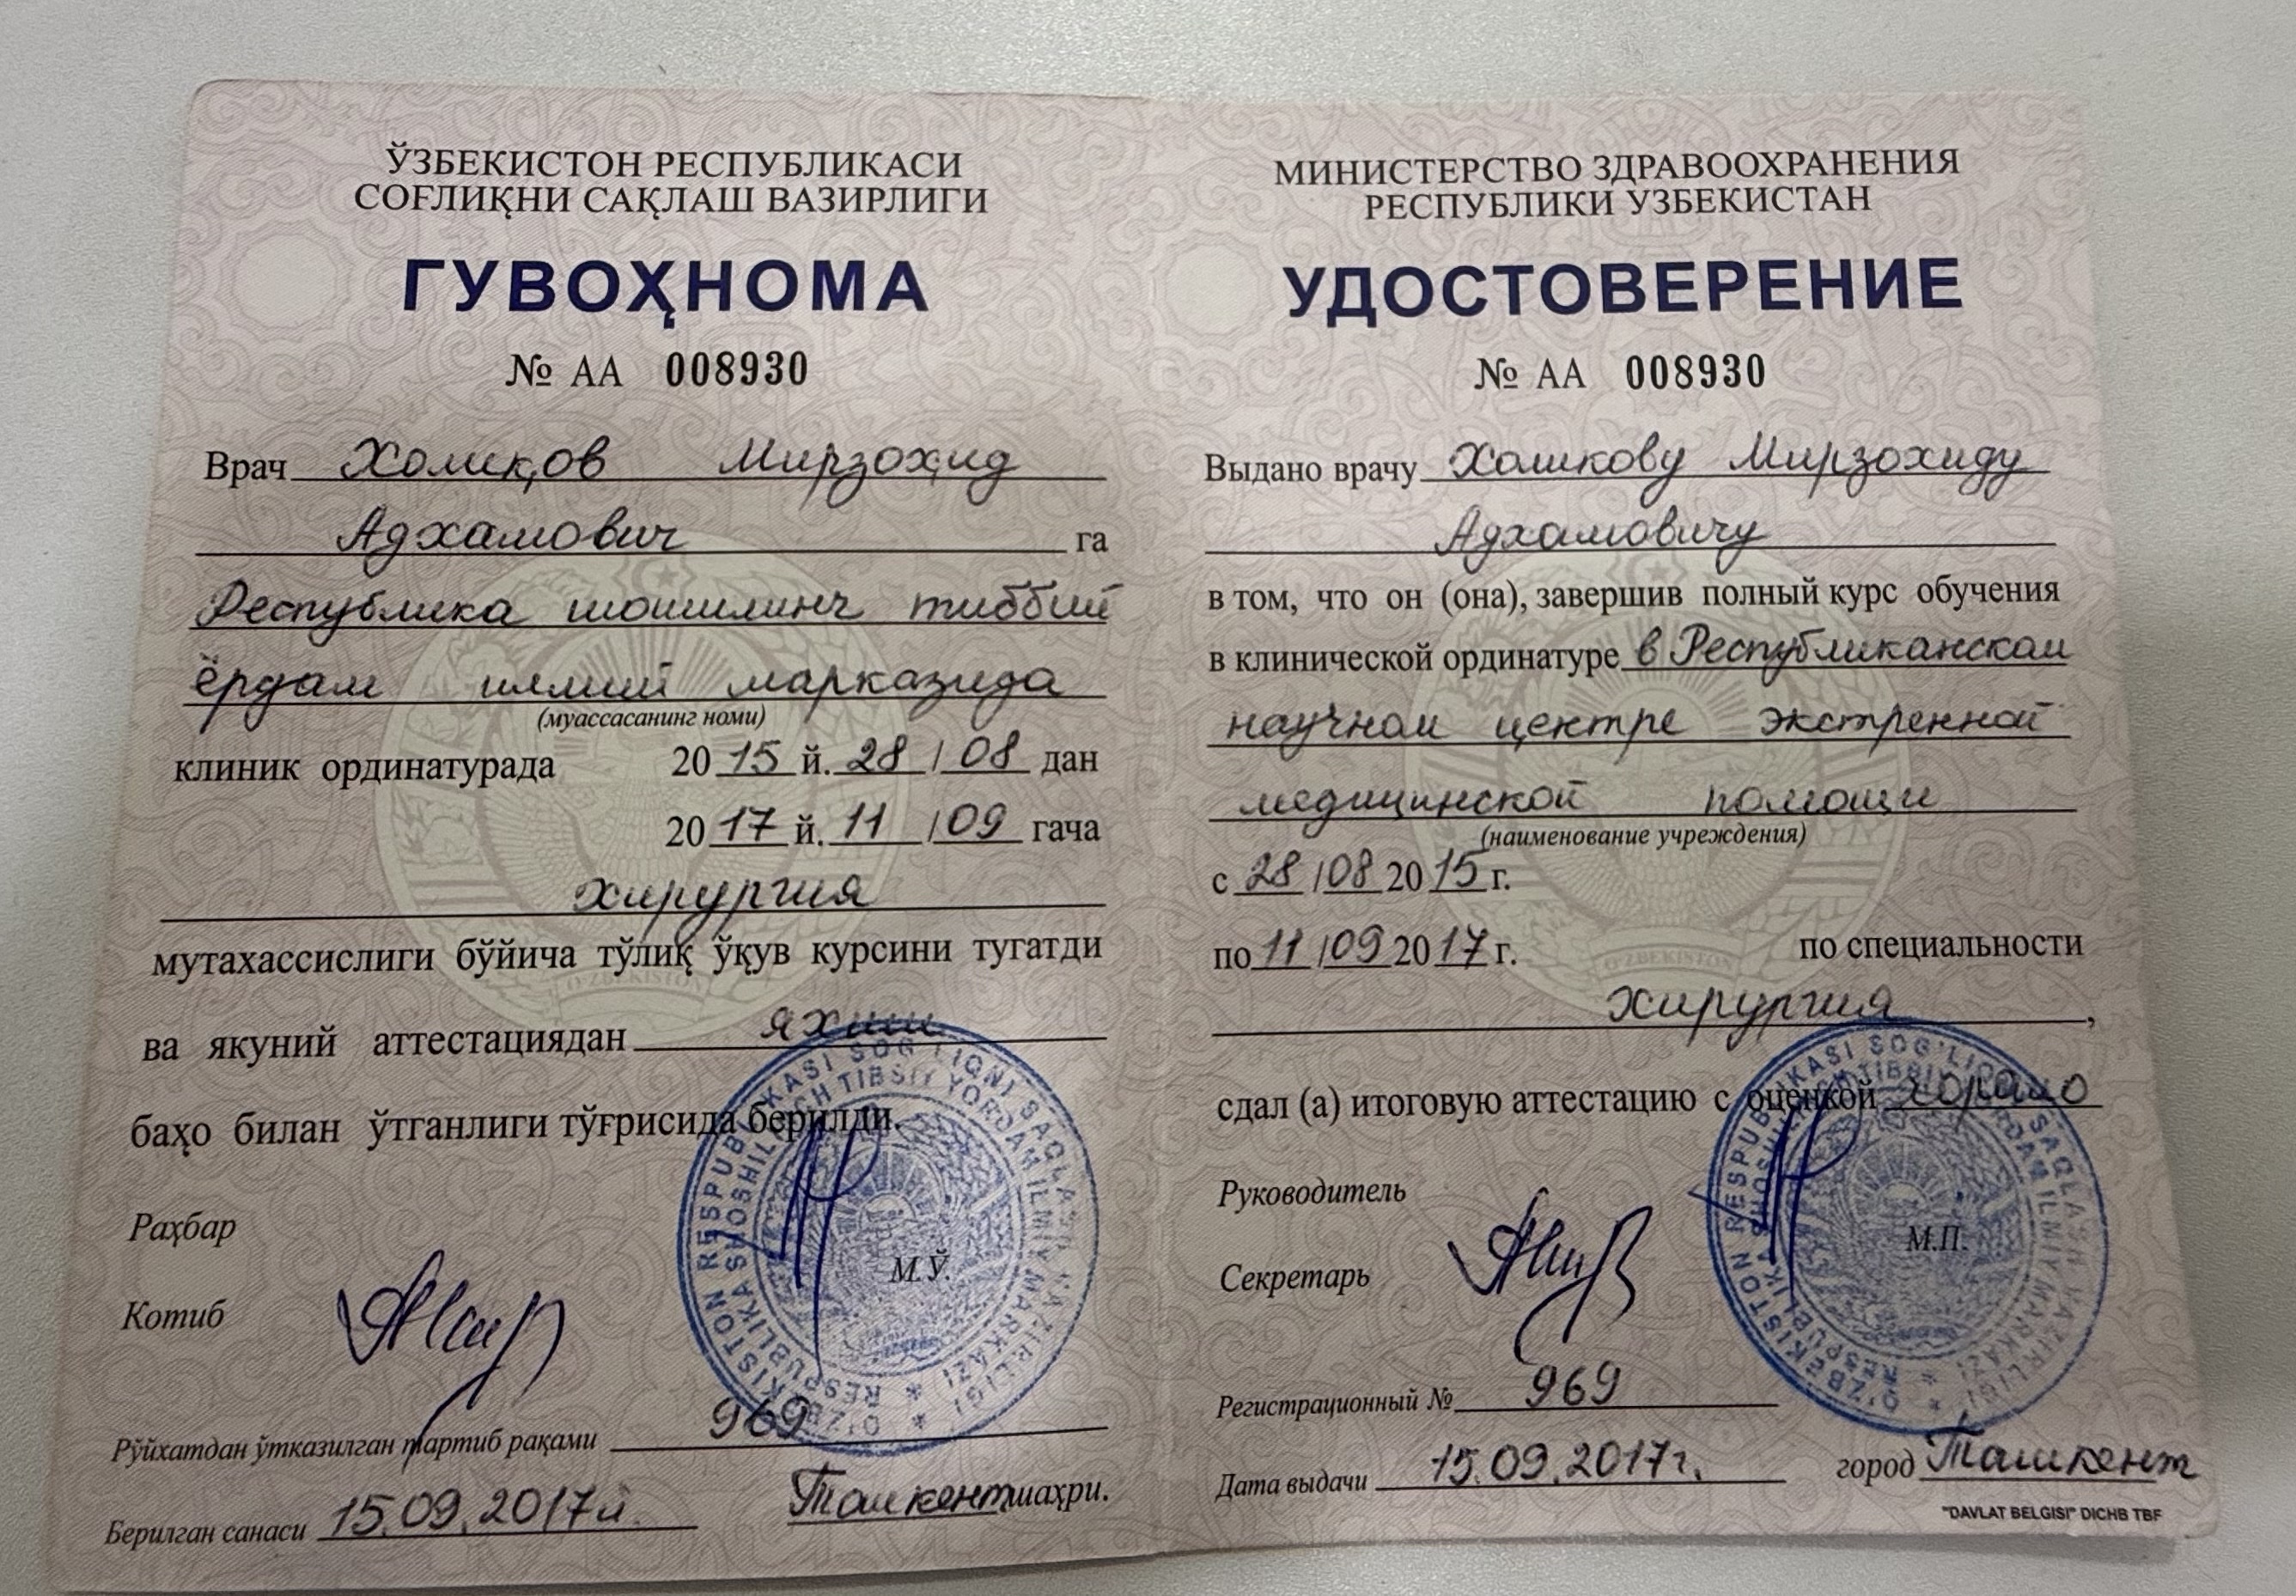 ЎЗБЕКИСТОН РЕСПУБЛИКАСИ
СОҒЛИҚНИ САҚЛАШ ВАЗИРЛИГИ
ГУВОҲНОМА
№ АА 008930
Врач Холиқов Мирзоҳид
Адхамович га
Республика шошилинч тиббий
ёрдам илмий марказида
(муассасанинг номи)
клиник ординатурада 2015 й. 28 / 08 дан
2017 й. 11 / 09 гача
хирургия
мутахассислиги бўйича тўлиқ ўқув курсини тугатди
ва якуний аттестациядан яхши
баҳо билан ўтганлиги тўғрисида берилди.
Раҳбар
М.Ў.
Котиб
Рўйхатдан ўтказилган тартиб рақами 969
Берилган санаси 15.09.2017й. Ташкент шаҳри.
O'ZBEKISTON RESPUBLIKASI SOG'LIQNI SAQLASH VAZIRLIGI
RESPUBLIKA SHOSHILINCH TIBBIY YORDAM ILMIY MARKAZI
МИНИСТЕРСТВО ЗДРАВООХРАНЕНИЯ
РЕСПУБЛИКИ УЗБЕКИСТАН
УДОСТОВЕРЕНИЕ
№ АА 008930
Выдано врачу Холикову Мирзохиду
Адхамовичу
в том, что он (она), завершив полный курс обучения
в клинической ординатуре в Республиканском
научном центре экстренной
медицинской помощи
(наименование учреждения)
с 28 / 08 2015 г.
по 11 / 09 2017 г. по специальности
хирургия,
сдал (а) итоговую аттестацию с оценкой хорошо
Руководитель
М.П.
Секретарь
Регистрационный № 969
Дата выдачи 15.09.2017г. город Ташкент
"DAVLAT BELGISI" DICHB TBF
O'ZBEKISTON RESPUBLIKASI SOG'LIQNI SAQLASH VAZIRLIGI
RESPUBLIKA SHOSHILINCH TIBBIY YORDAM ILMIY MARKAZI